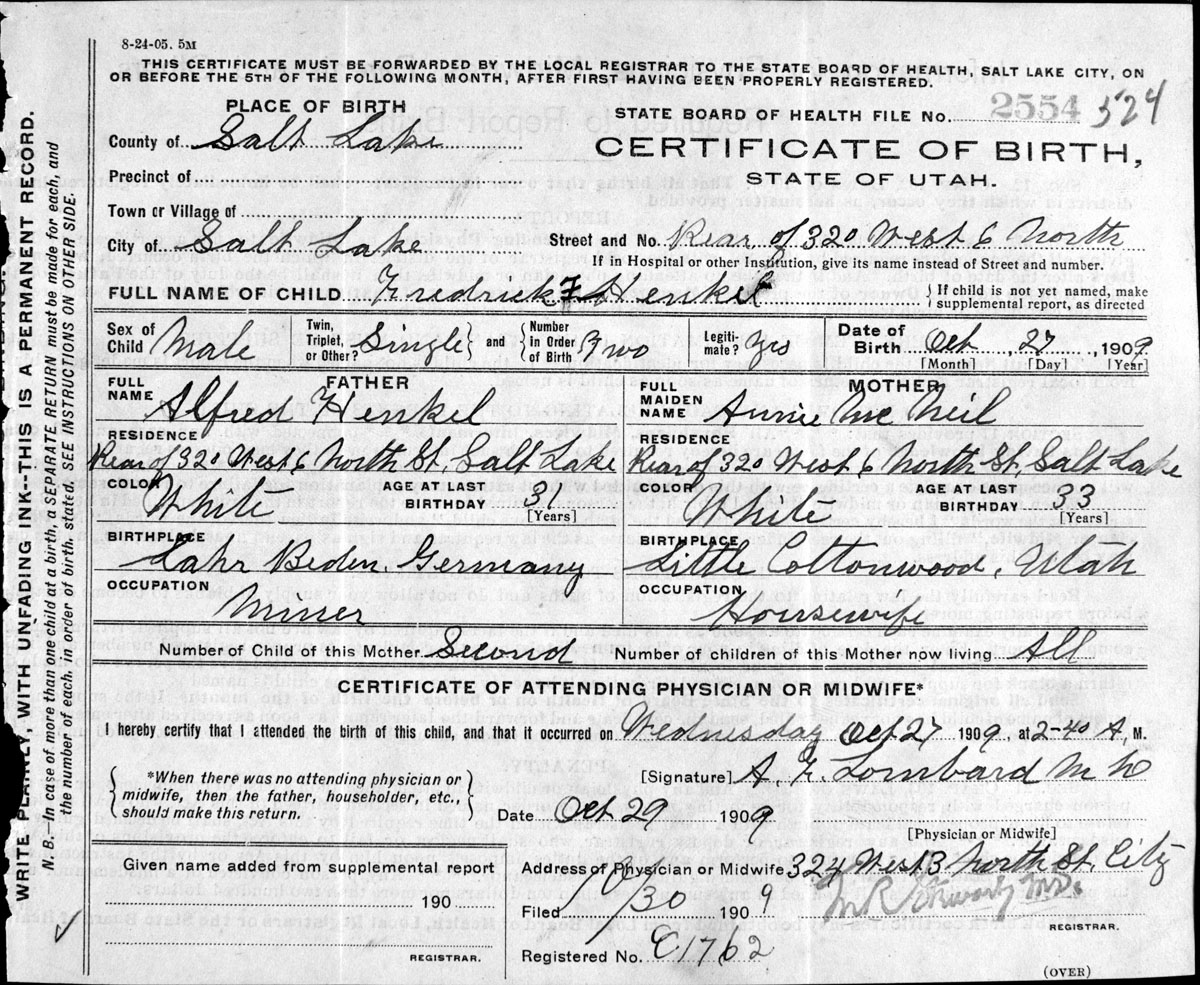 8-24-05. 5M
THIS CERTIFICATE MUST BE FORWARDED BY THE LOCAL REGISTRAR TO THE STATE BOARD OF HEALTH, SALT LAKE CITY, ON
OR BEFORE THE 5TH OF THE FOLLOWING MONTH, AFTER FIRST HAVING BEEN PROPERLY REGISTERED.
PLACE OF BIRTH
STATE BOARD OF HEALTH FILE No. 2554 524
County of Salt Lake
CERTIFICATE OF BIRTH,
STATE OF UTAH.
Precinct of
Town or Village of
City of Salt Lake Street and No. Rear of 320 West 6 North
If in Hospital or other Institution, give its name instead of Street and number.
FULL NAME OF CHILD Fredrick F Henkel { If child is not yet named, make
supplemental report, as directed
Sex of Child Male Twin, Triplet, or Other? Single } and { Number in Order of Birth Two Legiti- mate? Yes Date of Birth Oct 27, 1909
[Month] [Day] [Year]
FATHER MOTHER
FULL NAME Alfred Henkel FULL MAIDEN NAME Annie Mc Neil
RESIDENCE RESIDENCE
Rear of 320 West 6 North St, Salt Lake Rear of 320 West 6 North St, Salt Lake
COLOR White AGE AT LAST BIRTHDAY 31 [Years] COLOR White AGE AT LAST BIRTHDAY 33 [Years]
BIRTHPLACE BIRTHPLACE
Lahr Beden, Germany Little Cottonwood, Utah
OCCUPATION OCCUPATION
Miner Housewife
Number of Child of this Mother Second Number of children of this Mother now living All
CERTIFICATE OF ATTENDING PHYSICIAN OR MIDWIFE*
I hereby certify that I attended the birth of this child, and that it occurred on Wednesday Oct 27 1909, at 2-40 A, M.
{ *When there was no attending physician or
midwife, then the father, householder, etc.,
should make this return. }
[Signature] A. Lombard M D
Date Oct 29 1909
[Physician or Midwife]
Given name added from supplemental report
190
REGISTRAR.
Address of Physician or Midwife 324 West 3 North St. City
Filed 10/30 1909
REGISTRAR.
Registered No. C1762
(OVER)
WRITE PLAINLY, WITH UNFADING INK--THIS IS A PERMANENT RECORD.
N. B.--In case of more than one child at a birth, a SEPARATE RETURN must be made for each, and
the number of each, in order of birth stated. SEE INSTRUCTIONS ON OTHER SIDE.